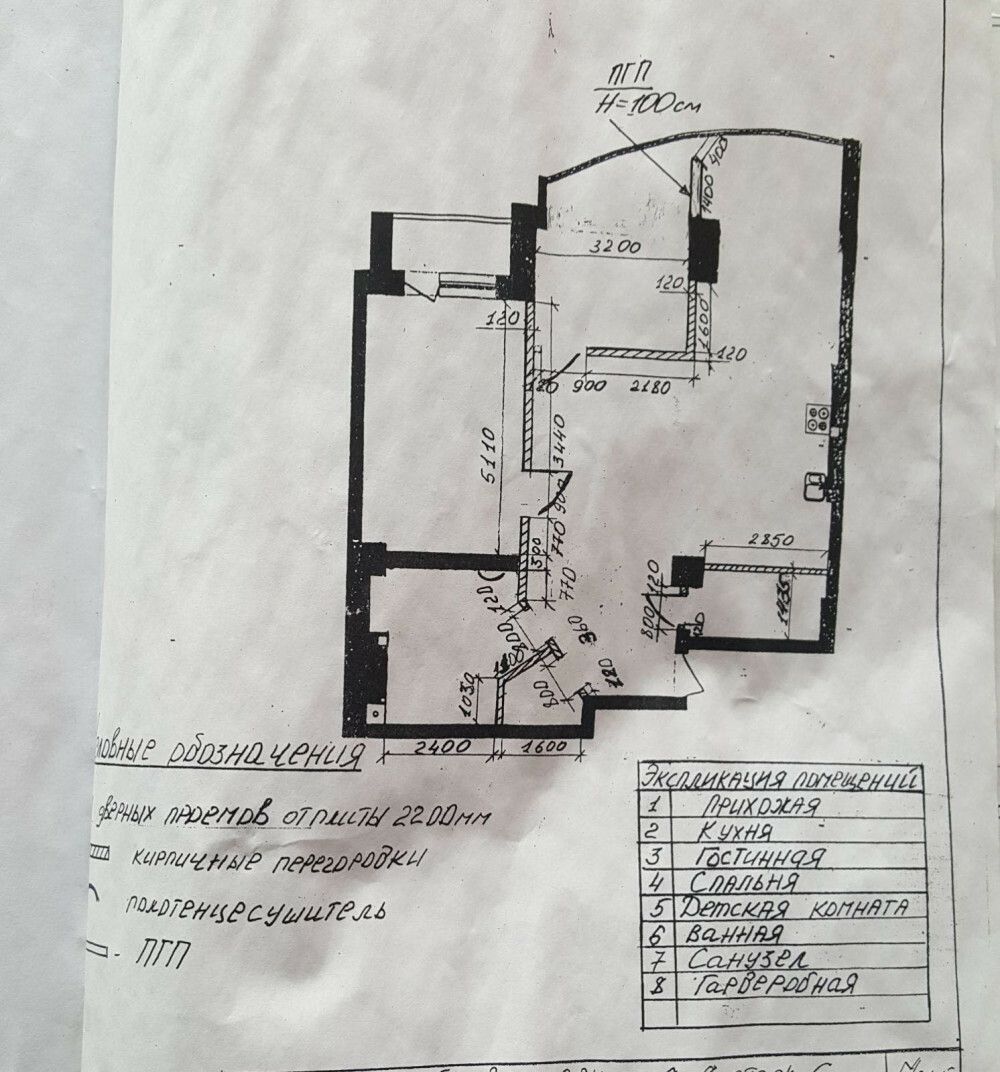 ПГП
Н=100см
400
1400
3200
120
1600
120
120
120 900 2180
5110
3440
900
770
500
770
120
800
360
180
800
1030
2400
1600
2850
120
800
120
1435
овные обозначения
дверных проемов от плиты 2200мм
кирпичные перегородки
полотенцесушитель
- ПГП
Экспликация помещений
1 Прихожая
2 Кухня
3 Гостинная
4 Спальня
5 Детская комната
6 Ванная
7 Санузел
8 Гарверобная